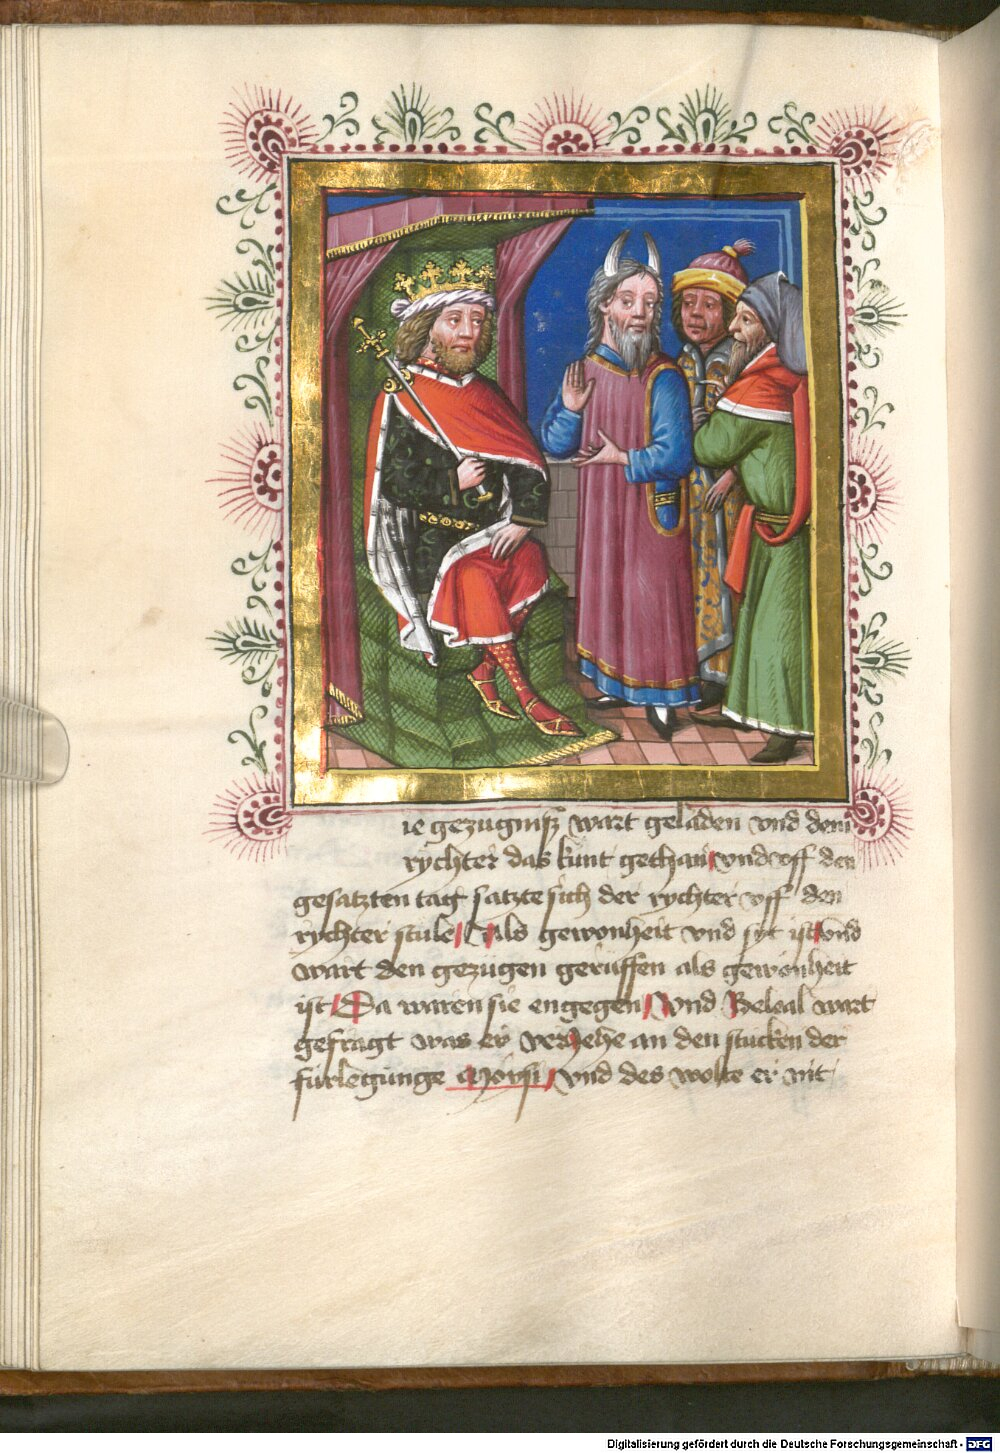 ie gezügnisz wart geladen vnd dem
rychter das kunt gethan vnd vff den
gesatzten tag satzte sich der rychter vff den
rychter stule Als gewonheit vnd syt ist vnd
wart den gezügen gerüffen als gewonheit
ist Da waren sie engegen Vnd Belial wart
gefragt was er verjehe an den stucken der
fürlegunge Moysi vnd des wolte er nit
Digitalisierung gefördert durch die Deutsche Forschungsgemeinschaft - DFG